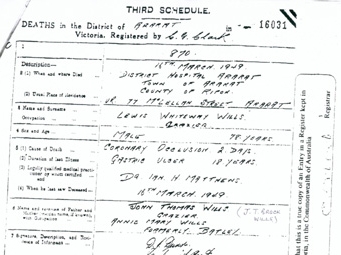 THIRD SCHEDULE.
DEATHS in the District of ARARAT in
16031
Victoria. Registered by
1
870.
Description—
2 (1) When and where Died
16TH MARCH 1949
DISTRICT HOSPITAL ARARAT
TOWN OF ARARAT
(2) Usual Place of Residence
COUNTY OF RIPON.
77 McLELLAN STREET ARARAT
3 Name and Surname
LEWIS WHITEWAY WILLS
Occupation
GRAZIER
4 Sex and Age
MALE 78 YEARS
5 (1) Cause of Death
CORONARY OCCLUSION 2 DAYS
(2) Duration of last Illness
GASTRIC ULCER 18 YEARS
(3) Legally qualified medical practitioner by whom certified and
DR IAN H MATTHEWS
(4) When he last saw Deceased
15TH MARCH 1949
6 Name and Surname of Father and Mother with Occupation
JOHN THOMAS WILLS
GRAZIER
ANNIE MARY WILLS
FORMERLY BATLEY
7 Signature, Description, and Residence of Informant
that this is a true copy of an Entry in a Register kept in
in the Commonwealth of Australia
Registrar